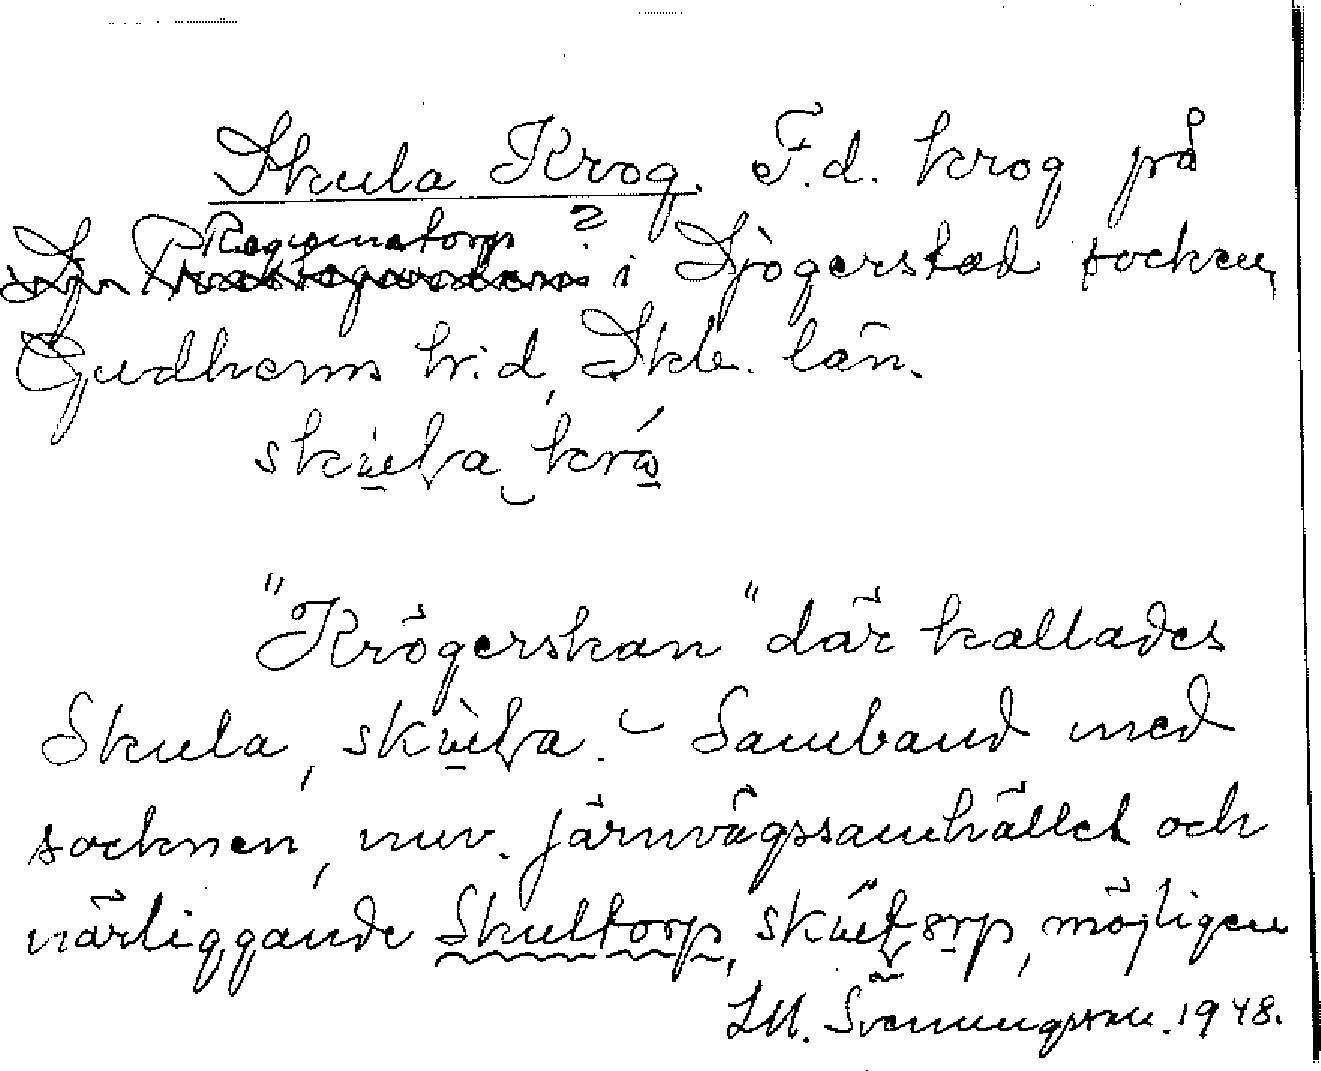 Skula Krog. F.d. krog på
Regumatorp ?
i Sjögerstad socken,
Gudhems h:d, Skb. län.
skùla krå
"Krögerskan" där kallades
Skula, skùla. - Samband med
socknen, nuv. järnvägssamhället och
närliggande Skultorp, skúltorp, möjligen
LM. Svenungsson. 1948.